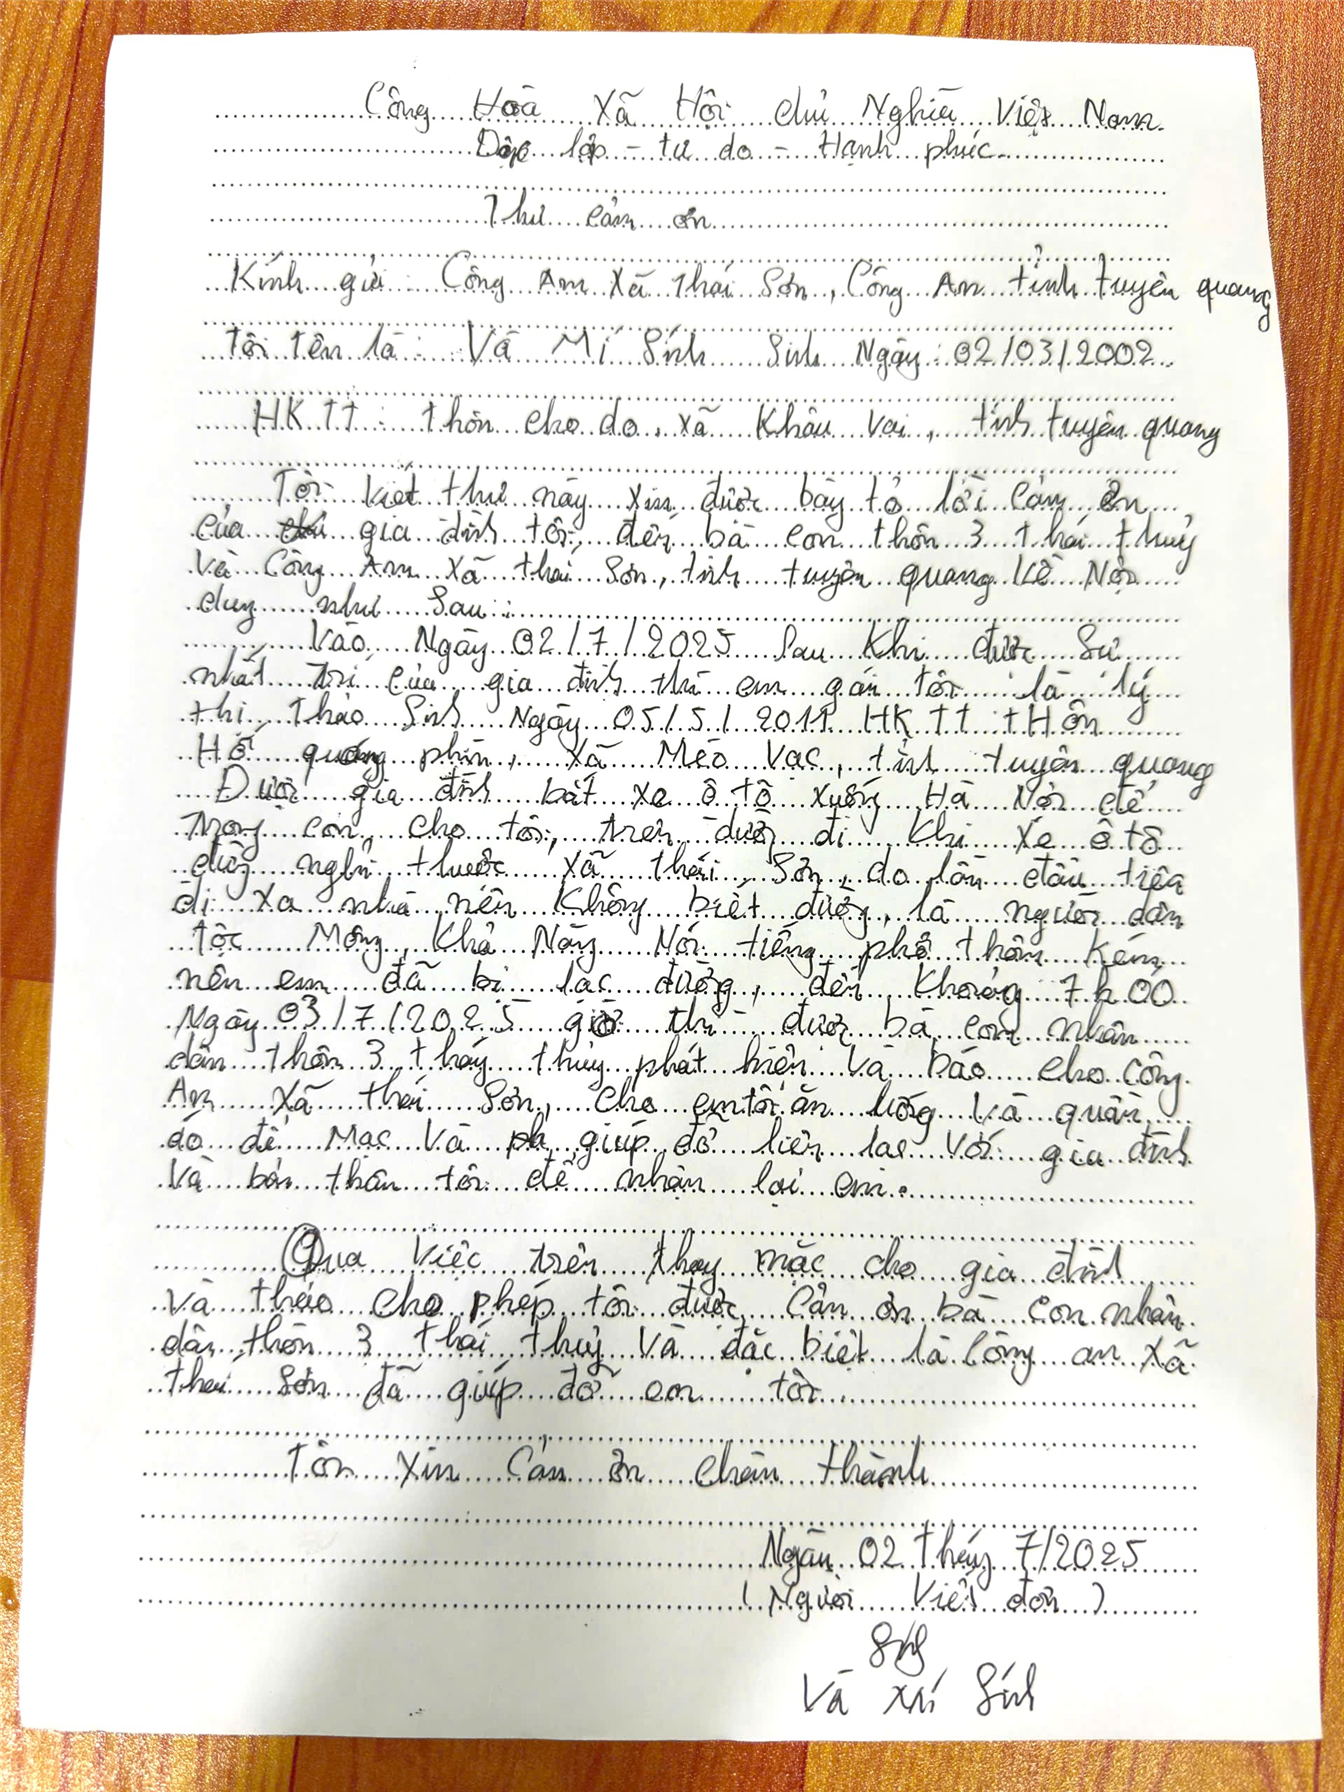 Công Hoà Xã Hội Chủ Nghĩa Việt Nam
Độc lập - tự do - Hạnh phúc
Thư cảm ơn
Kính gửi : Công An Xã Thái Sơn, Công An tỉnh tuyên quang
Tôi tên là : Và Mí Sính Sinh Ngày : 02/03/2002
HKTT : thôn cho do, xã Khâu Vai, tỉnh tuyên quang
Tôi viết thư này xin được bày tỏ lời cảm ơn
của gia đình tôi, đến bà con thôn 3 thái thuỷ
Và Công An Xã thái Sơn, tỉnh tuyên quang Về Nội
dung như Sau :
Vào Ngày 02/7/2025 Sau Khi được Sự
nhất trí của gia đình thì em gái tôi là lý
thị thảo Sinh Ngày 05/5/2011 HKTT : tHôn
Hố quáng phìn, Xã Mèo Vạc, tỉnh tuyên quang
Được gia đình bắt xe ô tô xuống Hà Nội để
Trong con cho tôi, trên đường đi Khi xe ô tô
dừng nghỉ thuộc xã thái Sơn, do lần đầu tiên
đi xa nhà nên Không biết đường, là người dân
tộc Mông, Khả Năng Nói tiếng phổ thông Kém
nên em đã bị lạc đường, đến Khoảng 7h00
Ngày 03/7/2025 giờ thì được bà con nhân
dân thôn 3 tháy thủy phát hiện Và báo cho Công
An Xã thái Sơn, cho em tôi ăn uống Và quần
áo để Mạc Và giúp đỡ liên lạc Với gia đình
Và bản thân tôi để nhận lại em.
Qua Việc trên thay mặc cho gia đình
Và thảo cho phép tôi được Cản ơn bà con nhân
dân thôn 3 thái thuỷ Và đặc biệt là Công an xã
thái Sơn đã giúp đỡ em tôi.
Tôi Xin Cản ơn chân thành
Ngày 02 tháng 7/2025
( Người Viết đơn )
Và Mí Sính